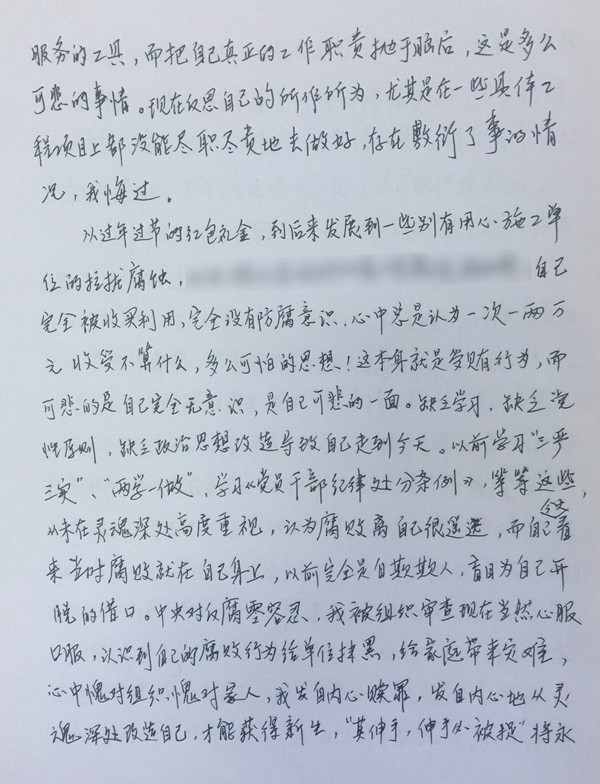 服务的工具，而把自己真正的工作职责抛于脑后，这是多么
可悲的事情。现在反思自己的所作所为，尤其是在一些具体工
程项目上都没能尽职尽责地去做好，存在敷衍了事的情
况，我悔过。
从过年过节的红包礼金，到后来发展到一些别有用心施工单
位的拉拢腐蚀，自己
完全被收买利用，完全没有防腐意识，心中总是认为一次一两万
元收受不算什么，多么可怕的思想！这本身就是受贿行为，而
可悲的是自己完全无意识，是自己可悲的一面。缺乏学习，缺乏党
性原则，缺乏政治思想改造导致自己走到今天。以前学习“三严
三实”、“两学一做”，学习《党员干部纪律处分条例》，等等这些，
从未在灵魂深处高度重视，认为腐败离自己很遥远，而自己这看
来当时腐败就在自己身上，以前完全是自欺欺人，盲目为自己开
脱的借口。中央对反腐零容忍，我被组织审查现在当然心服
口服，认识到自己的腐败行为给单位抹黑，给家庭带来灾难，
心中愧对组织愧对家人，我发自内心赎罪，发自内心地从灵
魂深处改造自己，才能获得新生，“莫伸手，伸手必被捉”将永